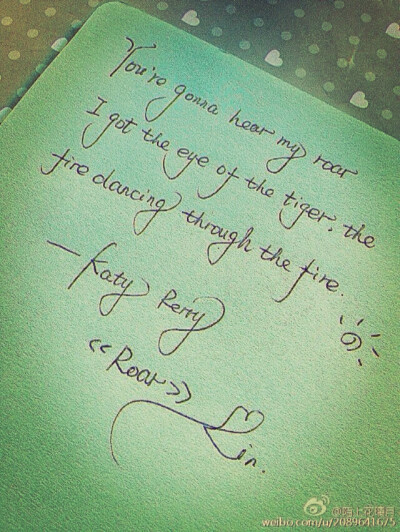 You're gonna hear my roar
I got the eye of the tiger, the
fire dancing through the fire.
—Katy Perry
<<Roar>>
Lin.
weibo.com/u/2089641675